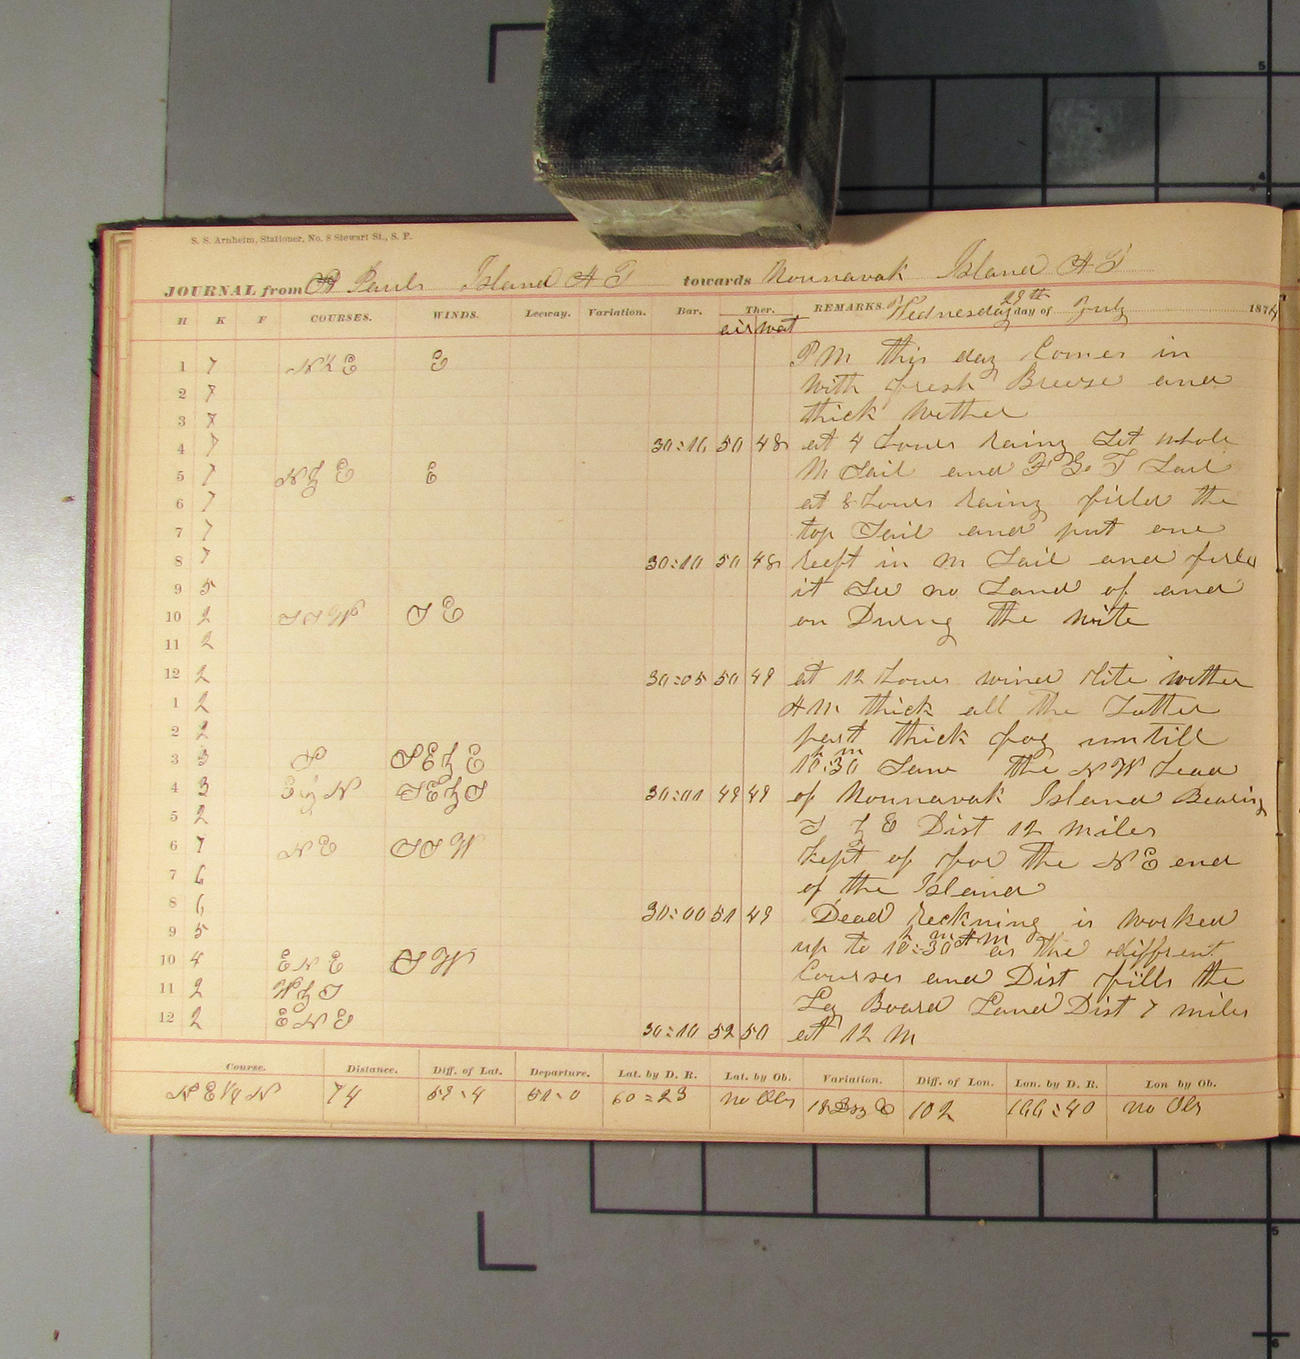 S. S. Arnheim, Stationer, No. 8 Stewart St., S. F.
JOURNAL from St Pauls Island A T towards Nounavak Island A T
H K F COURSES. WINDS. Leeway. Variation. Bar. Ther. REMARKS. Wednesday 29th day of July 1874
air wat
1 7 E P M this day Comes in
2 7 with fresh Breese and
3 7 thick wether
4 7 30:10 50 48 at 4 hours rainy Set whole
5 7 N by E E M Sail and F G T Sail
6 7 at 8 hours rainy firled the
7 7 top Sail and put one
8 7 30:10 50 48 reeft in M Sail and firled
9 5 it See no Land of and
10 2 S S W S E on During the nite
11 2
12 2 30:05 50 49 at 12 hours wind lite wether
1 2 A M thick all the Latter
2 2 part thick fog untill
3 3 S E by E 10h:30m Saw the N W head
4 3 E by N S E by S 30:01 49 49 of Nounavak Island Bearing
5 2 S by E Dist 12 miles
6 7 N E S S W kept of for the N E end
7 6 of the Island
8 6 30:00 51 49 Dead reckning is worked
9 5 up to 10h:30m A M as the different
10 4 E N E S W Courses and Dist fills the
11 2 W by S Log Board Land Dist 7 miles
12 2 E N E 30:10 52 50 at 12 M
Course. Distance. Diff. of Lat. Departure. Lat. by D. R. Lat. by Ob. Variation. Diff. of Lon. Lon. by D. R. Lon by Ob.
N E 1/4 N 74 59:4 51:0 60:23 no Obs 102 166:40 no Obs
5
4
5
6